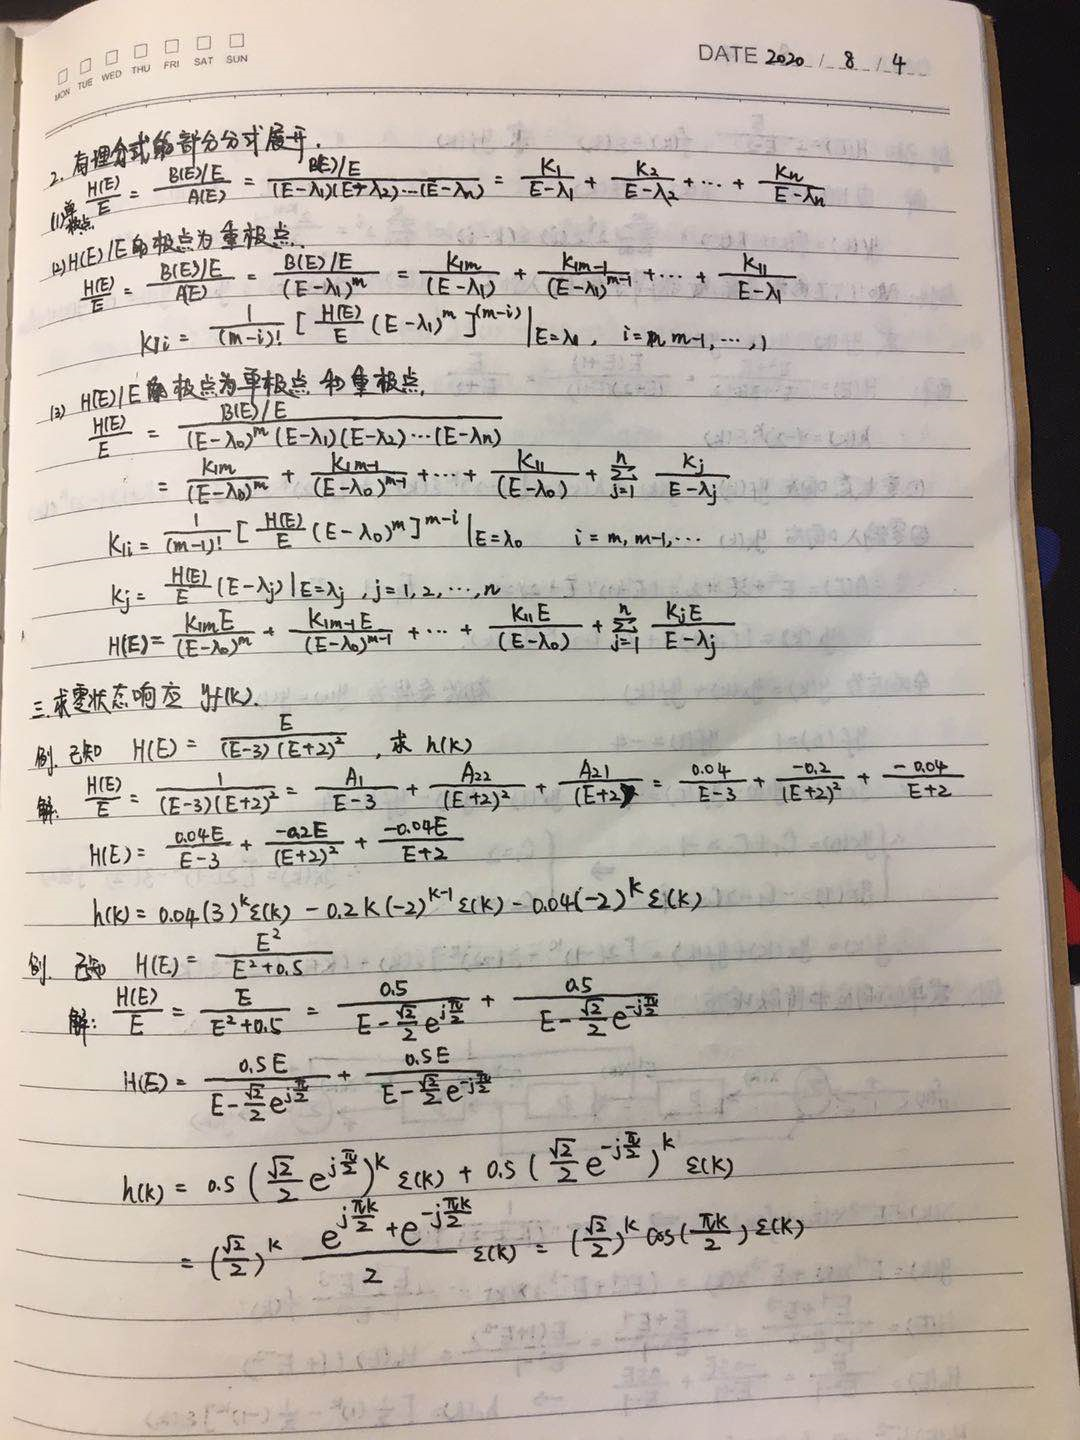 MON TUE WED THU FRI SAT SUN
DATE 2020 / 8 / 4
2. 有理分式的部分分式展开.
(1)单极点 H(E)/E = (B(E)/E)/A(E) = (B(E)/E)/((E-λ₁)(E+λ₂)⋯(E-λn)) = K₁/(E-λ₁) + K₂/(E-λ₂) + ⋯ + Kn/(E-λn)
(2) H(E)/E 的极点为重极点.
H(E)/E = (B(E)/E)/A(E) = (B(E)/E)/(E-λ₁)^m = K₁m/(E-λ₁) + K₁m-1/(E-λ₁)^(m-1) + ⋯ + K₁₁/(E-λ₁)
K₁i = 1/(m-i)! [ H(E)/E (E-λ₁)^m ]^(m-i) |E=λ₁, i=m, m-1, ⋯, 1
(3) H(E)/E 的极点为单极点和重极点.
H(E)/E = (B(E)/E)/((E-λ₀)^m (E-λ₁)(E-λ₂)⋯(E-λn))
= K₁m/(E-λ₀)^m + K₁m-1/(E-λ₀)^(m-1) + ⋯ + K₁₁/(E-λ₀) + Σ_(j=1)^n Kj/(E-λj)
K₁i = 1/(m-1)! [ H(E)/E (E-λ₀)^m ]^(m-i) |E=λ₀ i=m, m-1, ⋯
Kj = H(E)/E (E-λj)|E=λj, j=1, 2, ⋯, n
H(E) = K₁mE/(E-λ₀)^m + K₁m-1E/(E-λ₀)^(m-1) + ⋯ + K₁₁E/(E-λ₀) + Σ_(j=1)^n KjE/(E-λj)
三.求零状态响应 yf(k).
例. 已知 H(E) = E/((E-3)(E+2)²), 求 h(k)
解: H(E)/E = 1/((E-3)(E+2)²) = A₁/(E-3) + A₂₂/(E+2)² + A₂₁/(E+2) = 0.04/(E-3) + -0.2/(E+2)² + -0.04/(E+2)
H(E) = 0.04E/(E-3) + -0.2E/(E+2)² + -0.04E/(E+2)
h(k) = 0.04(3)^k ε(k) - 0.2k(-2)^(k-1) ε(k) - 0.04(-2)^k ε(k)
例. 已知 H(E) = E²/(E²+0.5)
解: H(E)/E = E/(E²+0.5) = 0.5/(E-(√2/2)e^(jπ/2)) + 0.5/(E-(√2/2)e^(-jπ/2))
H(E) = 0.5E/(E-(√2/2)e^(jπ/2)) + 0.5E/(E-(√2/2)e^(-jπ/2))
h(k) = 0.5 ((√2/2)e^(jπ/2))^k ε(k) + 0.5 ((√2/2)e^(-jπ/2))^k ε(k)
= (√2/2)^k (e^(jπk/2) + e^(-jπk/2))/2 ε(k) = (√2/2)^k cos(πk/2) ε(k)